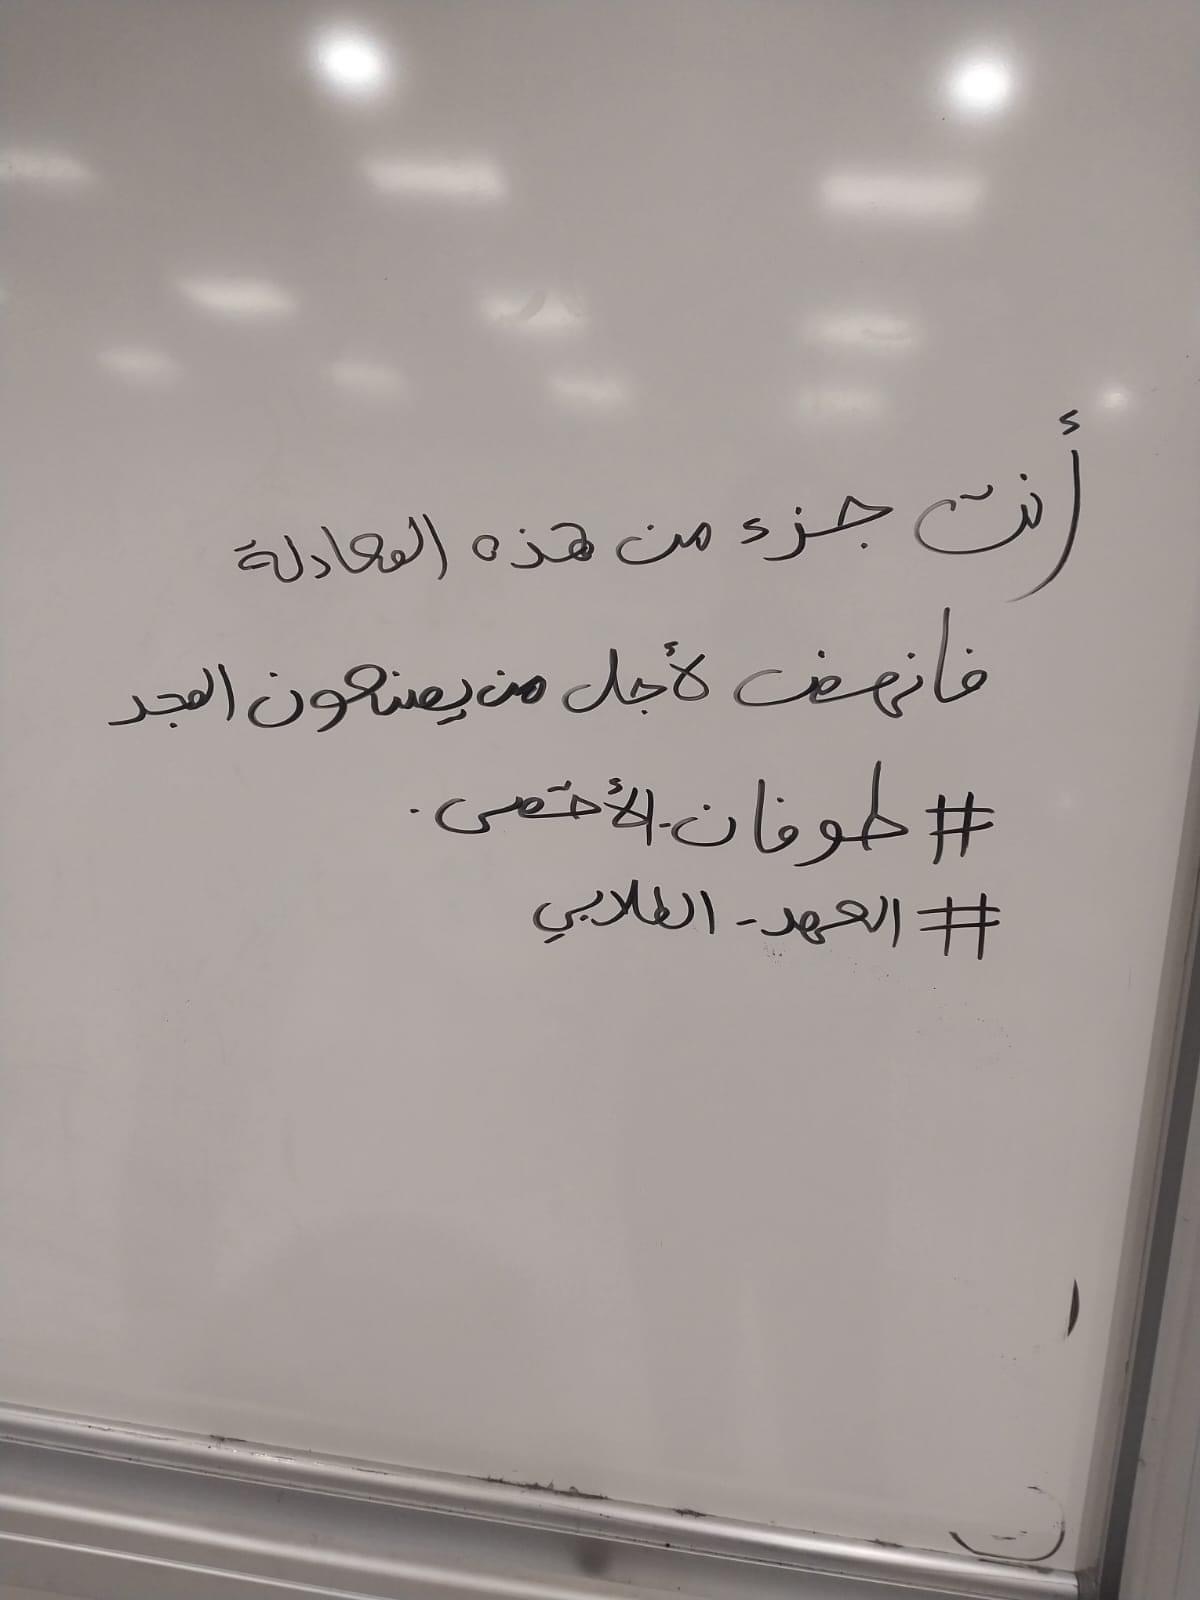 أنت جزء من هذه المعادلة
فانهض لأجل من يصنعون المجد
#طوفان-الأقصى.
#العهد-الطلابي